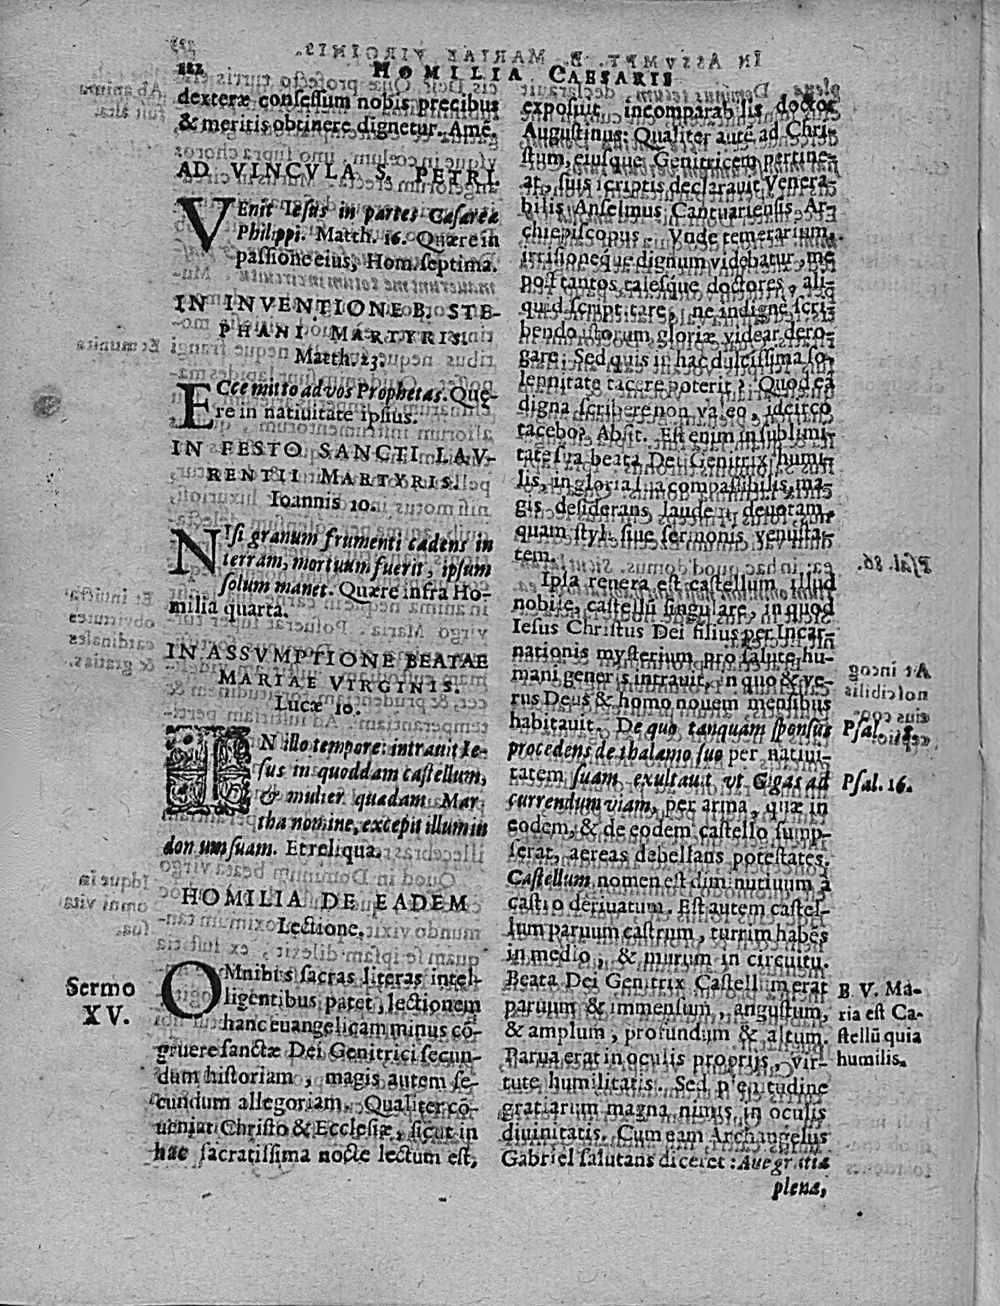 222
HOMILIA CAESARIS
dexteræ consessum nobis precibus
& meritis obtinere dignetur. Amē.
AD VINCVLA S. PETRI.
VEnit Iesus in partes Cæsareæ
Philippi. Matth. 16. Quære in
passione eius, Hom. septima.
IN INVENTIONE B. STE-
PHANI MARTYRIS.
Matth. 23.
ECce mitto ad vos Prophetas. Que-
re in natiuitate ipsius.
IN FESTO SANCTI LAV-
RENTII MARTYRIS.
Ioannis 10.
NIsi granum frumenti cadens in
terram, mortuum fuerit, ipsum
solum manet. Quære infra Ho-
milia quarta.
IN ASSVMPTIONE BEATAE
MARIAE VIRGINIS.
Lucæ 10.
IN illo tempore: intrauit Ie-
sus in quoddam castellum,
& mulier quadam Mar
tha nomine, excepit illum in
domum suam. Et reliqua.
HOMILIA DE EADEM
Lectione.
Sermo
XV.
OMnibus sacras literas intel-
ligentibus patet, lectionem
hanc euangelicam minus cō-
gruere sanctæ Dei Genitrici secun-
dum historiam, magis autem se-
cundum allegoriam. Qualiter cō-
ueniat Christo & Ecclesiæ, sicut in
hac sacratissima nocte lectum est,
exposuit incomparabilis doctor
Augustinus: Qualiter autē ad Chri-
stum, eiusque Genitricem pertine-
at, suis scriptis declarauit Venera-
bilis Anselmus Cantuariensis Ar-
chiepiscopus. Vnde temerarium,
irrisioneque dignum videbatur, me
post tantos talesque doctores, ali-
quid scriptitare, ne indigne scri-
bendo istorum gloriæ videar dero-
gare: Sed quis in hac dulcissima so-
lennitate tacere poterit? Quod eā
digna scribere non valeo, idcirco
tacebo? Absit. Est enim in sublimi-
tate sua beata Dei Genitrix humi-
lis, in gloria sua compassibilis, ma-
gis desiderans laudem deuotam,
quam styli siue sermonis venusta-
tem.
Ipsa reuera est castellum illud
nobile, castellū singulare, in quod
Iesus Christus Dei filius per Incar-
nationis mysterium pro salute hu-
mani generis intrauit, in quo & ve-
rus Deus & homo nouem mensibus
habitauit. De quo tanquam sponsus
procedens de thalamo suo per natiui-
tatem suam exultauit vt Gigas ad
currendum viam, per arma, quæ in
eodem, & de eodem castello sump-
serat, aereas debellans potestates.
Castellum nomen est diminutiuum à
castro deriuatum. Est autem castel-
lum paruum castrum, turrim habēs
in medio, & murum in circuitu.
Beata Dei Genitrix Castellum erat
paruum & immensum, angustum,
& amplum, profundum & altum.
Parua erat in oculis proprijs, vir-
tute humilitatis. Sed plenitudine
gratiarum magna nimis in oculis
diuinitatis. Cum eam Archangelus
Gabriel salutans diceret: Aue gratia
plena,
Psal. 18.
Psal. 16.
B. V. Ma-
ria est Ca-
stellū quia
humilis.